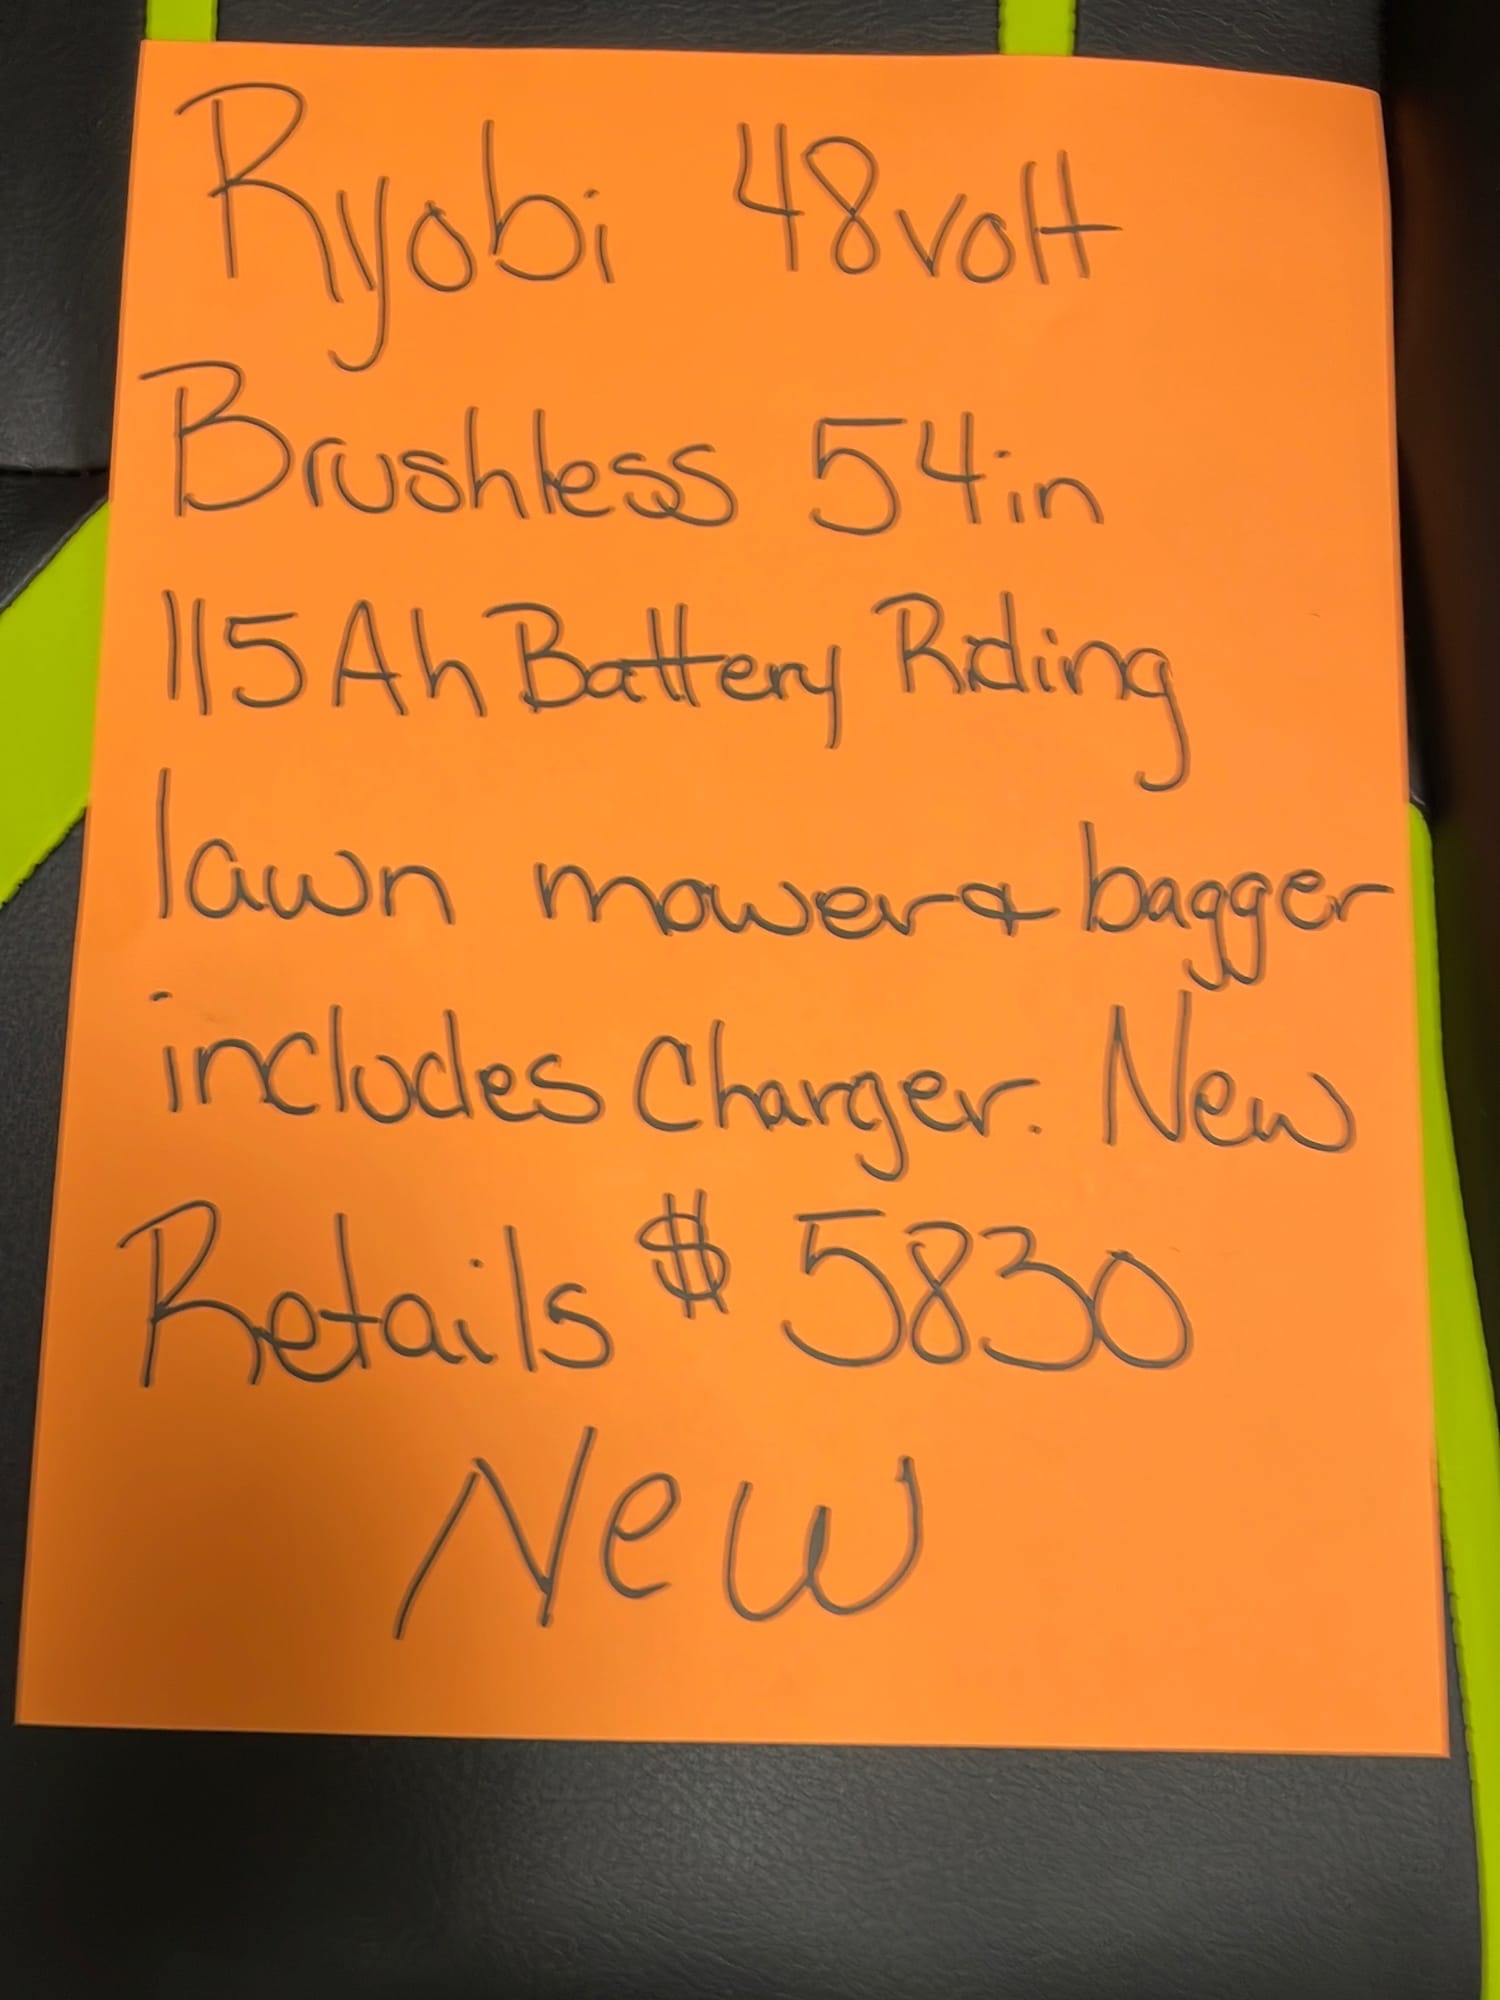 Ryobi 48volt
Brushless 54in
115Ah Battery Riding
lawn mower & bagger
includes Charger. New
Retails $ 5830
New